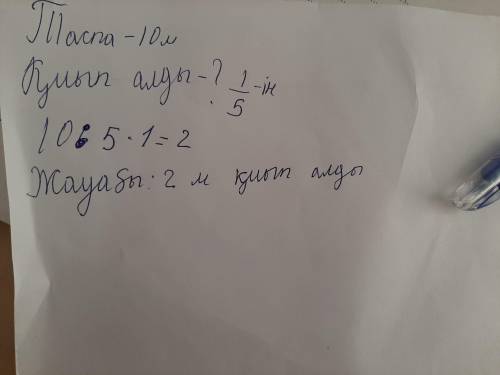 Таспа - 10 м
Қиып алды - ? 1/5 - ін
10 : 5 · 1 = 2
Жауабы: 2 м қиып алды